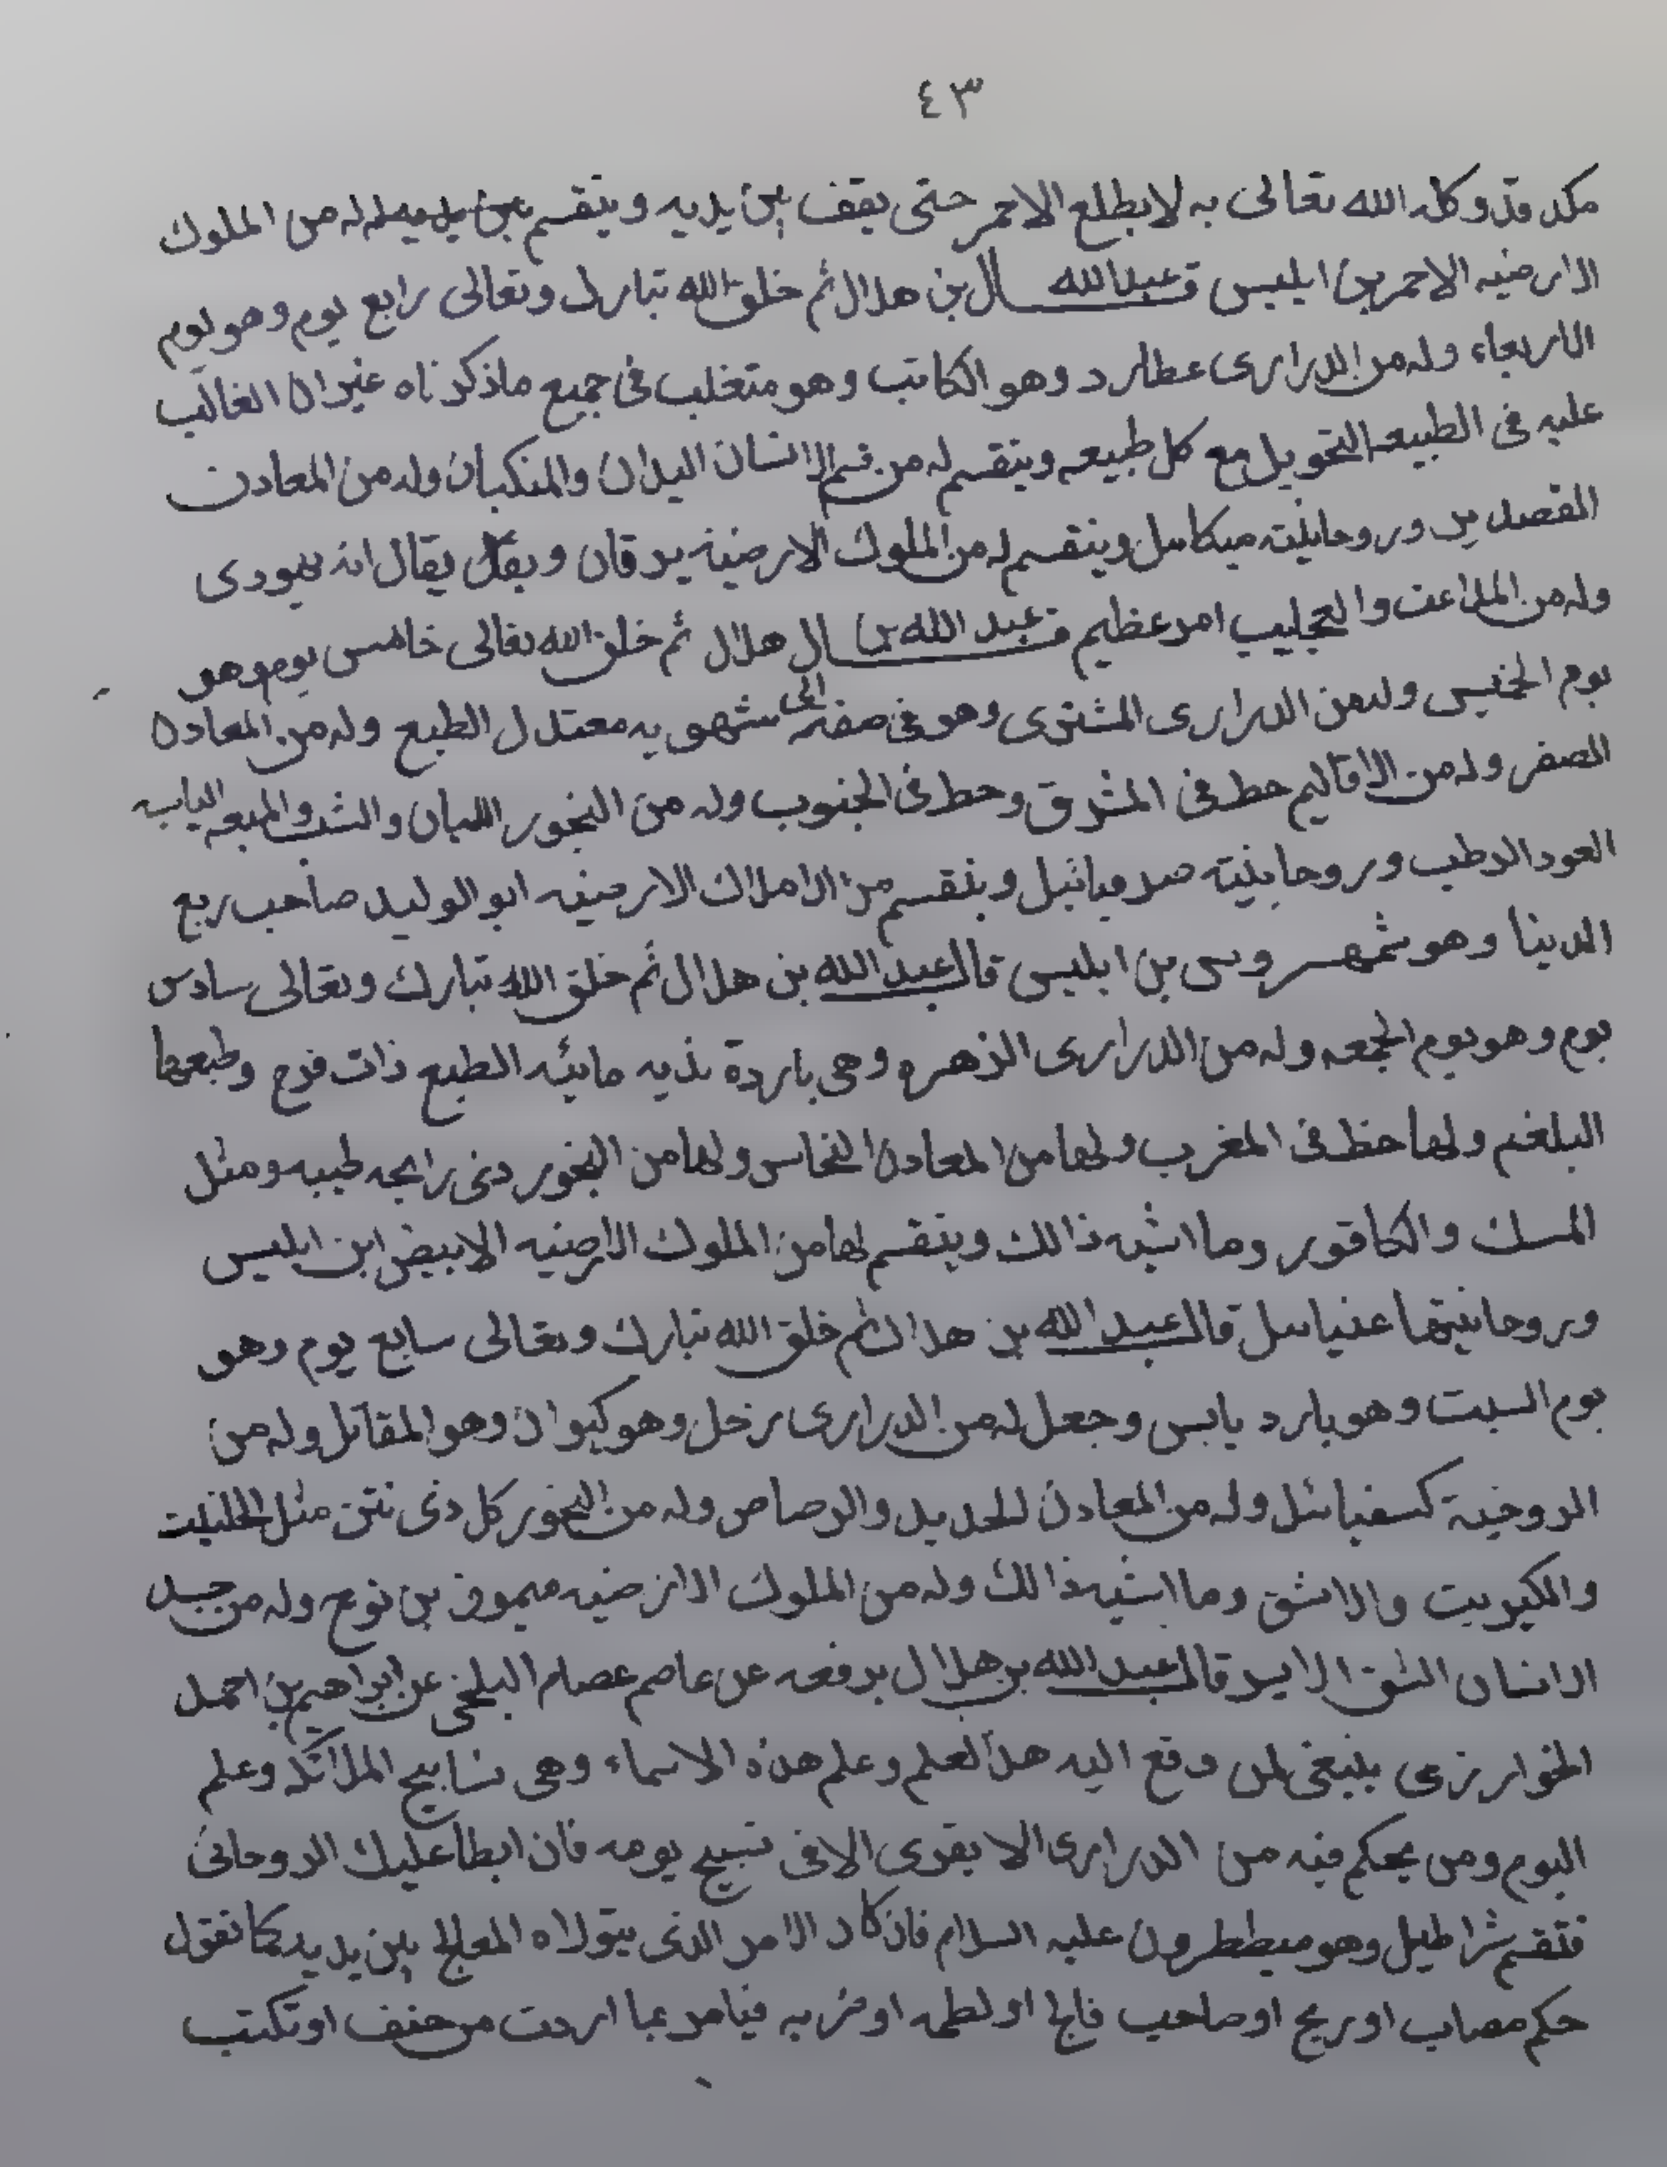 ٤٣
قد وكله الله تعالى به لا يطلع الاحمر حتى يقف بين يديه وينقسم له من الملوك
الارضيه الاحمر بن ابليس قال عبد الله بن هلال ثم خلق الله تبارك وتعالى رابع يوم وهو يوم
الاربعاء وله من الدرارى عطارد وهو الكاتب وهو متغلب فى جميع ماذكرناه غير ان الغالب
عليه فى الطبيعه التحويل مع كل طبيعه وينقسم له من قسم الانسان اليدان والمنكبان وله من المعادن
وروحانيته ميكاىىل وينقسم له من الملوك الارضيه برقان ويقال يقال انه يهودى
وله من والعجايب امر عظيم قال عبد الله بن هلال ثم خلق الله تعالى خامس يوم وهو
يوم الخميس وله من الدرارى المشترى وهو فى صفة شهويه معتدل الطبع وله من المعادن
الصفر وله من الاقاليم حط فى المشرق وحط فى الجنوب وله من البخور اللبان والشب والميعه اليابسه
العود الرطب وروحانيته صرفيائيل وينقسم من الاملاك الارضيه ابو الوليد صاحب ربع
الدينا وهو شمهروس بن ابليس قال عبد الله بن هلال ثم خلق الله تبارك وتعالى سادس
يوم وهو يوم الجمعه وله من الدرارى الزهره وهى باردة نديه مائيه الطبع ذات فرح وطبعها
البلغم ولها حظ فى المغرب ولها من المعادن النحاس ولها من البخور ذى رايحه طيبه ومثل
المسك والكافور وما اشبه ذالك وينقسم لها من الملوك الارضيه الابيض ابن ابليس
وروحانيتها عنياىىل قال عبد الله بن هلال ثم خلق الله تبارك وتعالى سابع يوم وهو
يوم السبت وهو بارد يابس وجعل له من الدرارى زحل وهو كيوان وهو المقاتل وله من
الروحنية كسفيائل وله من المعادن الحديد والرصاص وله من البخور كل ذى نتن مثل الحلتيت
والكبريت والاشق وما اشبه ذالك وله من الملوك الارضيه ميمون بن نوح وله من جسد
الانسان الشق الايسر قال عبد الله بن هلال يرفعه عن عاصم عصام البلخى عن ابراهيم بن احمد
الخوارزمى ينبغى لمن دفع اليه هذا العلم وعلم هذه الاسماء وهى تسابيح الملائكه وعلم
اليوم ومن يحكم فيه من الدرارى الا يقرى الا فى تسبيح يومه فان ابطا عليك الروحانى
فتقسم شراطيل وهو ميططرون عليه السلام فان كان الامر الذى يتولاه المعالج بين يديه كما تقول
حكم مصاب او ريح او صاحب فالج او لطمه او فيامر بما اردت من حنف او تكتب